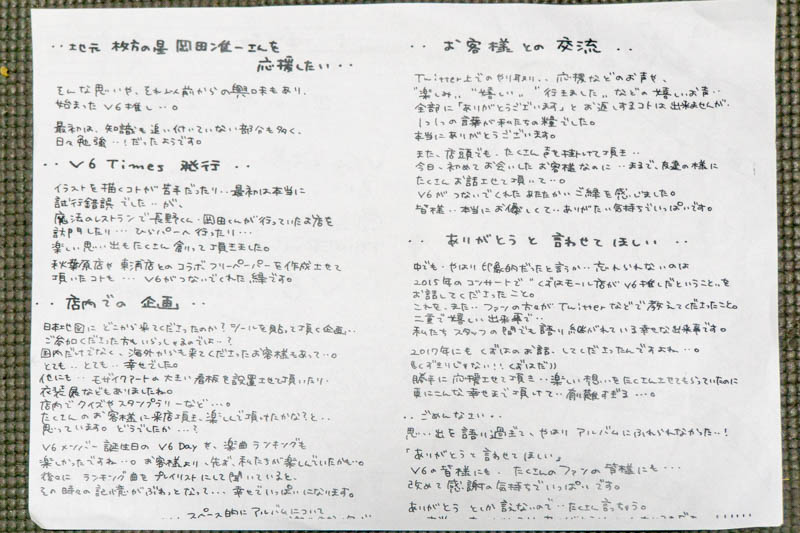 ‥地元 枚方の星 岡田准一さんを
応援したい‥
そんな思いや、それ以前からの興味もあり、
始まった V6推し…。
最初は、知識も追い付いていない部分も多く、
日々勉強…!だったようです。
‥V6 Times 発行‥
イラストを描くコトが苦手だったり…最初は本当に
試行錯誤でした‥が、
魔法のレストランで長野くん・岡田くんが行っていたお店を
訪問したり…ひらパーへ行ったり…
楽しい思い出もたくさん創って頂きました。
秋葉原店や東浦店とのコラボフリーペーパーを作成させて
頂いたコトも…V6がつないでくれた縁です。
‥店内での 企画‥
日本地図にどこから来てくださったのか?シールを貼って頂く企画…。
ご参加くださった方もいらっしゃるのでは…?
国内だけでなく、海外からも来てくださったお客様もあって…。
とても‥とても‥幸せでした。
他にも…モザイクアートの大きい看板を設置させて頂いたり・
衣装展などもありましたね。
店内でクイズやスタンプラリーなど…。
たくさんのお客様に来店頂き、楽しんで頂けたかな?と…
思っています。どうでしたか…?
V6メンバー誕生日の V6 Dayも、楽曲ランキングも
楽しかったですね…。お客様より、先ず、私たちが楽しんでいたかも…。
後々にランキング曲をプレイリストにして聞いていると、
その時々の記憶がぶわっとなって…幸せでいっぱいになります。
スペース的にアルバムについて
‥お客様との交流‥
Twitter上でのやり取り‥応援などのお声や、
"楽しみ" "嬉しい" "行きました"などの嬉しいお声‥
全部に「ありがとうございます」とお返しするコトは出来ませんが、
1つ1つの言葉が私たちの糧でした。
本当にありがとうございます。
また、店頭でも、たくさん声を掛けて頂き…
今日、初めてお会いしたお客様なのに…まるで、友達の様に
たくさんお話させて頂いて…。
V6がつないでくれたあたたかいご縁を感じました。
皆様‥本当にお優しくて‥ありがたい気持ちでいっぱいです。
‥ありがとうと言わせてほしい‥
中でも・やはり印象的だったと言うか…忘れられないのは
2015年のコンサートで"くずはモール店がV6推しだということ"を
お話してくださったこと。
これを、また‥ファンの方々がTwitterなどで教えてくださったこと。
二重で嬉しい出来事で‥
私たちスタッフの間でも語り継がれている幸せな出来事です。
2017年にも くずはのお話、してくださったんですよね…。
勝手に応援させて頂き‥楽しい想いをたくさんさせてもらっていたのに
更にこんな幸せまで頂けて‥有難すぎる…。
‥ごめんなさい‥
思い出を語り過ぎて、やはりアルバムにふれられなかった‥!
「ありがとうと言わせてほしい」
V6の皆様にも、たくさんのファンの皆様にも…
改めて感謝の気持ちでいっぱいです。
ありがとうとしか言えないので…たくさん言っちゃう。